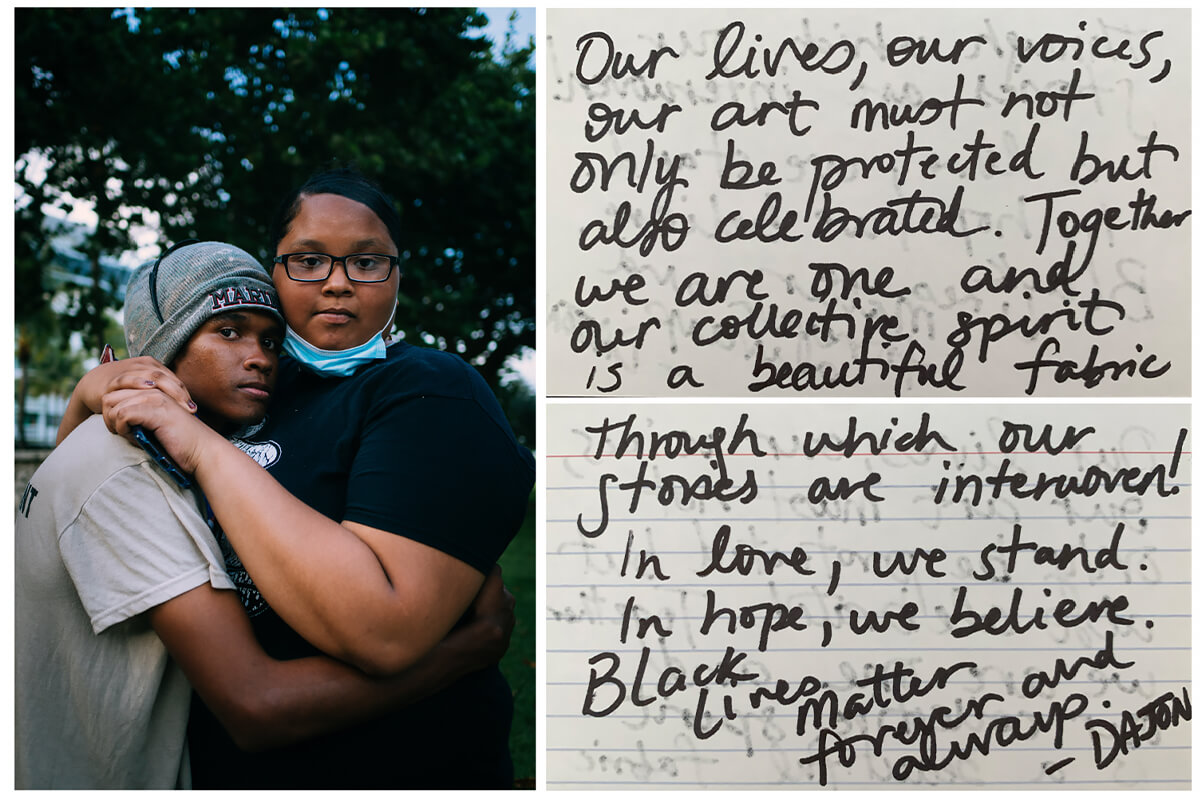 MARI
NT
Our lives, our voices,
our art must not
only be protected but
also celebrated. Together
we are one and
our collective spirit
is a beautiful fabric
through which our
stories are interwoven!
In love, we stand.
In hope, we believe.
Black
lives matter and
forever
always.
- DAJON